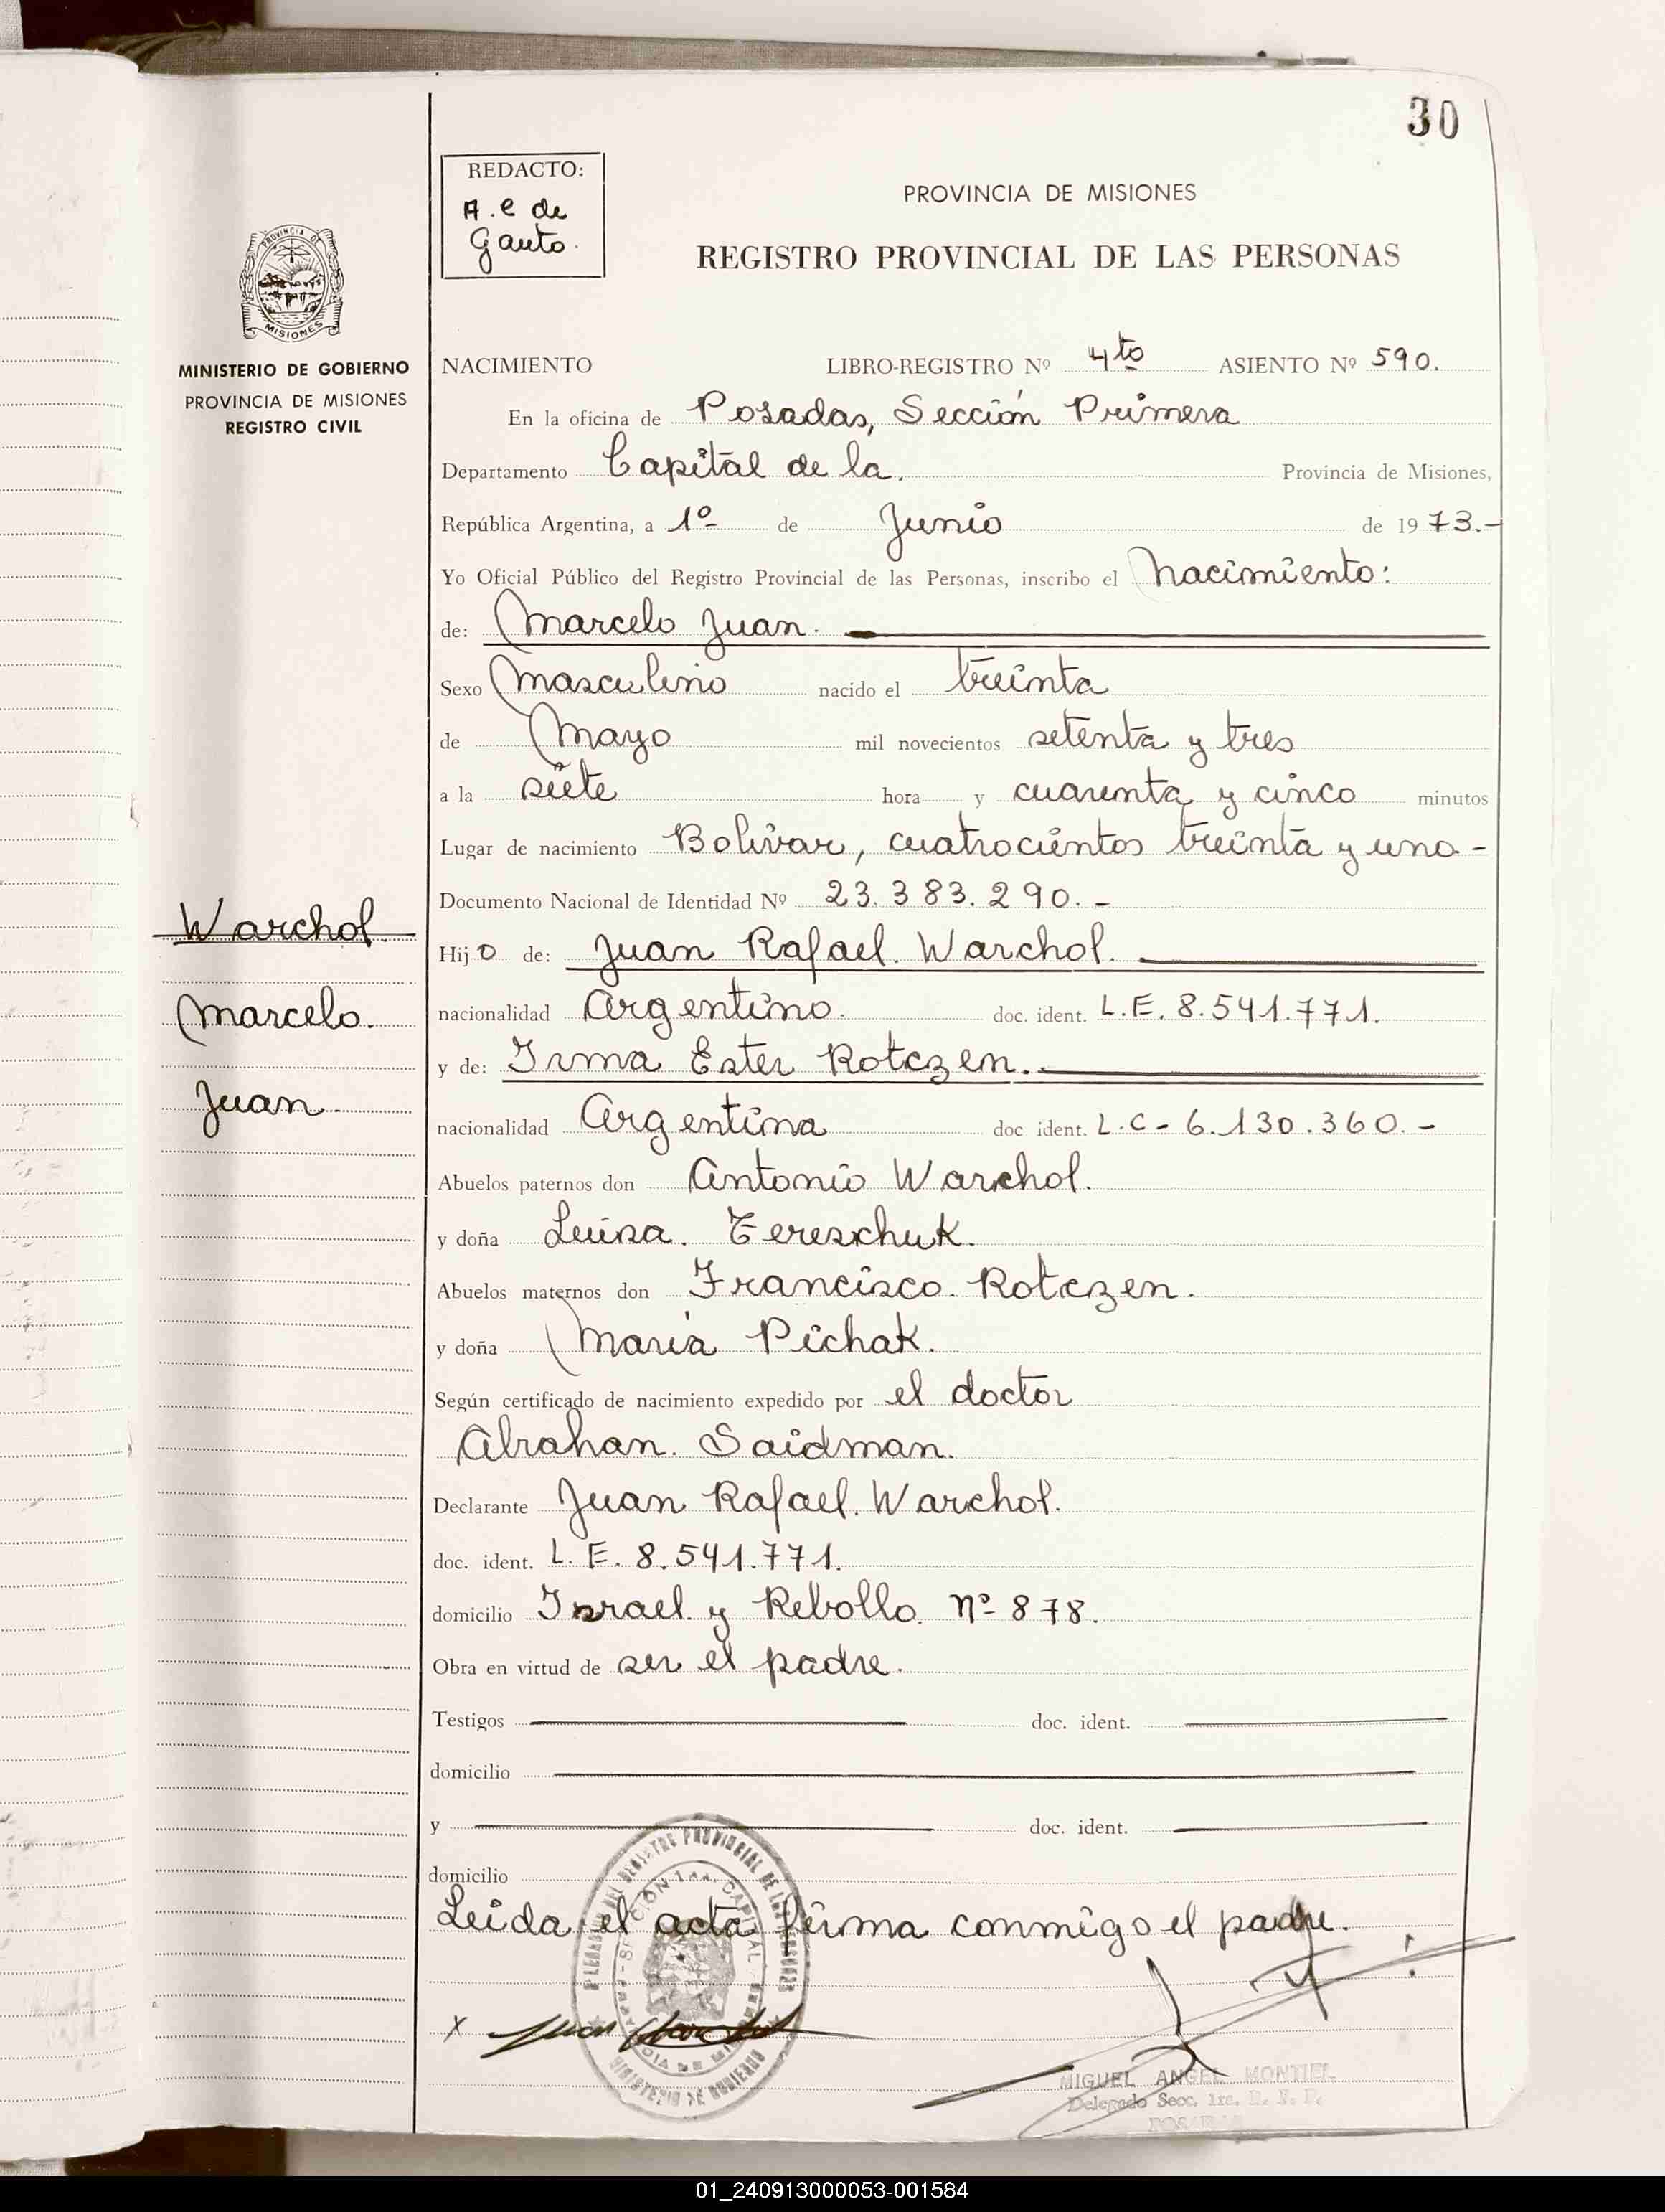 30
REDACTO:
A. e de
Gauto.
PROVINCIA DE MISIONES
REGISTRO PROVINCIAL DE LAS PERSONAS
PROVINCIA DE
MISIONES
MINISTERIO DE GOBIERNO
PROVINCIA DE MISIONES
REGISTRO CIVIL
NACIMIENTO LIBRO-REGISTRO Nº 4to ASIENTO Nº 590.
En la oficina de Posadas, Sección Primera
Departamento Capital de la. Provincia de Misiones,
República Argentina, a 1º de Junio de 1973.-
Yo Oficial Público del Registro Provincial de las Personas, inscribo el Nacimiento:
de: Marcelo Juan.
Sexo Masculino nacido el treinta
de Mayo mil novecientos setenta y tres
a la siete hora y cuarenta y cinco minutos
Lugar de nacimiento Bolivar, cuatrocientos treinta y uno-
Documento Nacional de Identidad Nº 23.383.290.-
Warchol
Hijo de: Juan Rafael. Warchol.
nacionalidad Argentino. doc. ident. L.E. 8.541.771.
Marcelo.
y de: Irma Ester Rotczen.
Juan
nacionalidad Argentina doc ident. L.C- 6.130.360.-
Abuelos paternos don Antonio Warchol.
y doña Luisa. Tereschuk.
Abuelos maternos don Francisco. Rotczen.
y doña María Pichak.
Según certificado de nacimiento expedido por el doctor
Abrahan. Saidman.
Declarante Juan Rafael. Warchol.
doc. ident. L. E. 8.541.771.
domicilio Israel y Rebollo. nº 878.
Obra en virtud de ser el padre.
Testigos doc. ident.
domicilio
y doc. ident.
domicilio
Leida el acta firma conmigo el padre.
x Juan
MIGUEL ANGEL MONTIEL
Delegado Secc. 1ra. R. N. P.
POSADAS
01_240913000053-001584